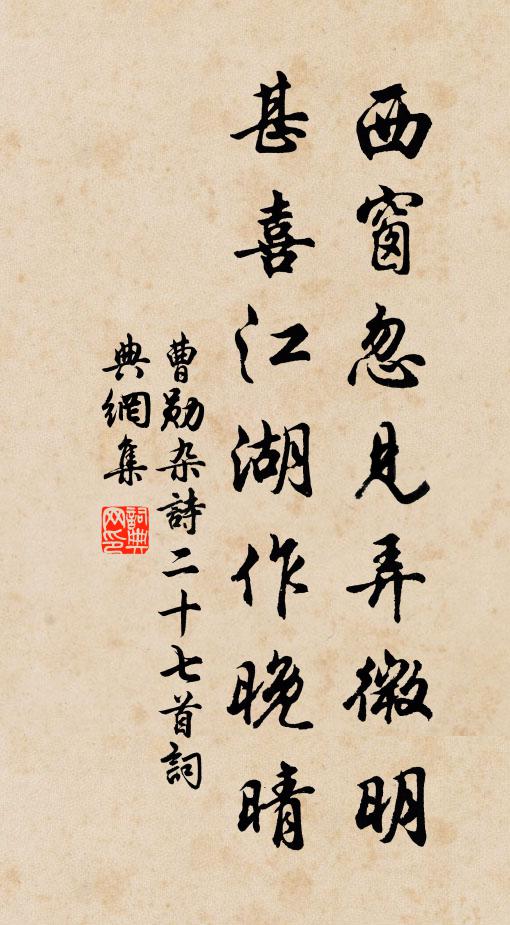 西窗忽见弄微明
甚喜江湖作晚晴
曹勋杂詩二十七首詞
典網集
詞典
网印